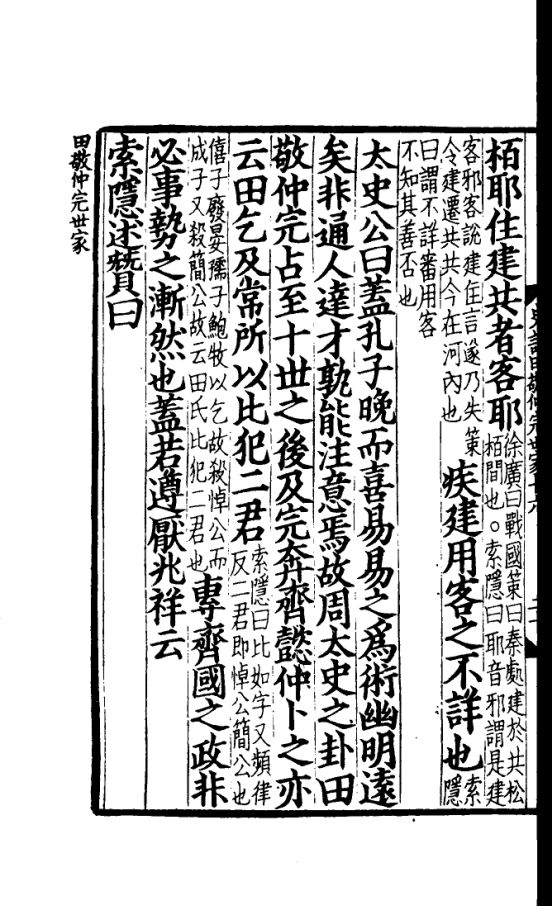 栢耶住建共者客耶
徐廣曰戰國策曰秦處建於共松
栢間也。索隱曰耶音邪謂是建
客邪客說建住言遂乃失策
令建遷共共今在河內也
疾建用客之不詳也
索
隱
曰謂不詳審用客
不知其善否也
太史公曰蓋孔子晚而喜易易之爲術幽明遠
矣非通人達才孰能注意焉故周太史之卦田
敬仲完占至十世之後及完奔齊懿仲卜之亦
云田乞及常所以比犯二君
索隱曰比如字又頻律
反二君即悼公簡公也
僖子廢晏孺子鮑牧以乞故殺悼公而
成子又殺簡公故云田氏比犯二君也
專齊國之政非
必事勢之漸然也蓋若遵厭兆祥云
索隱述贊曰
田敬仲完世家